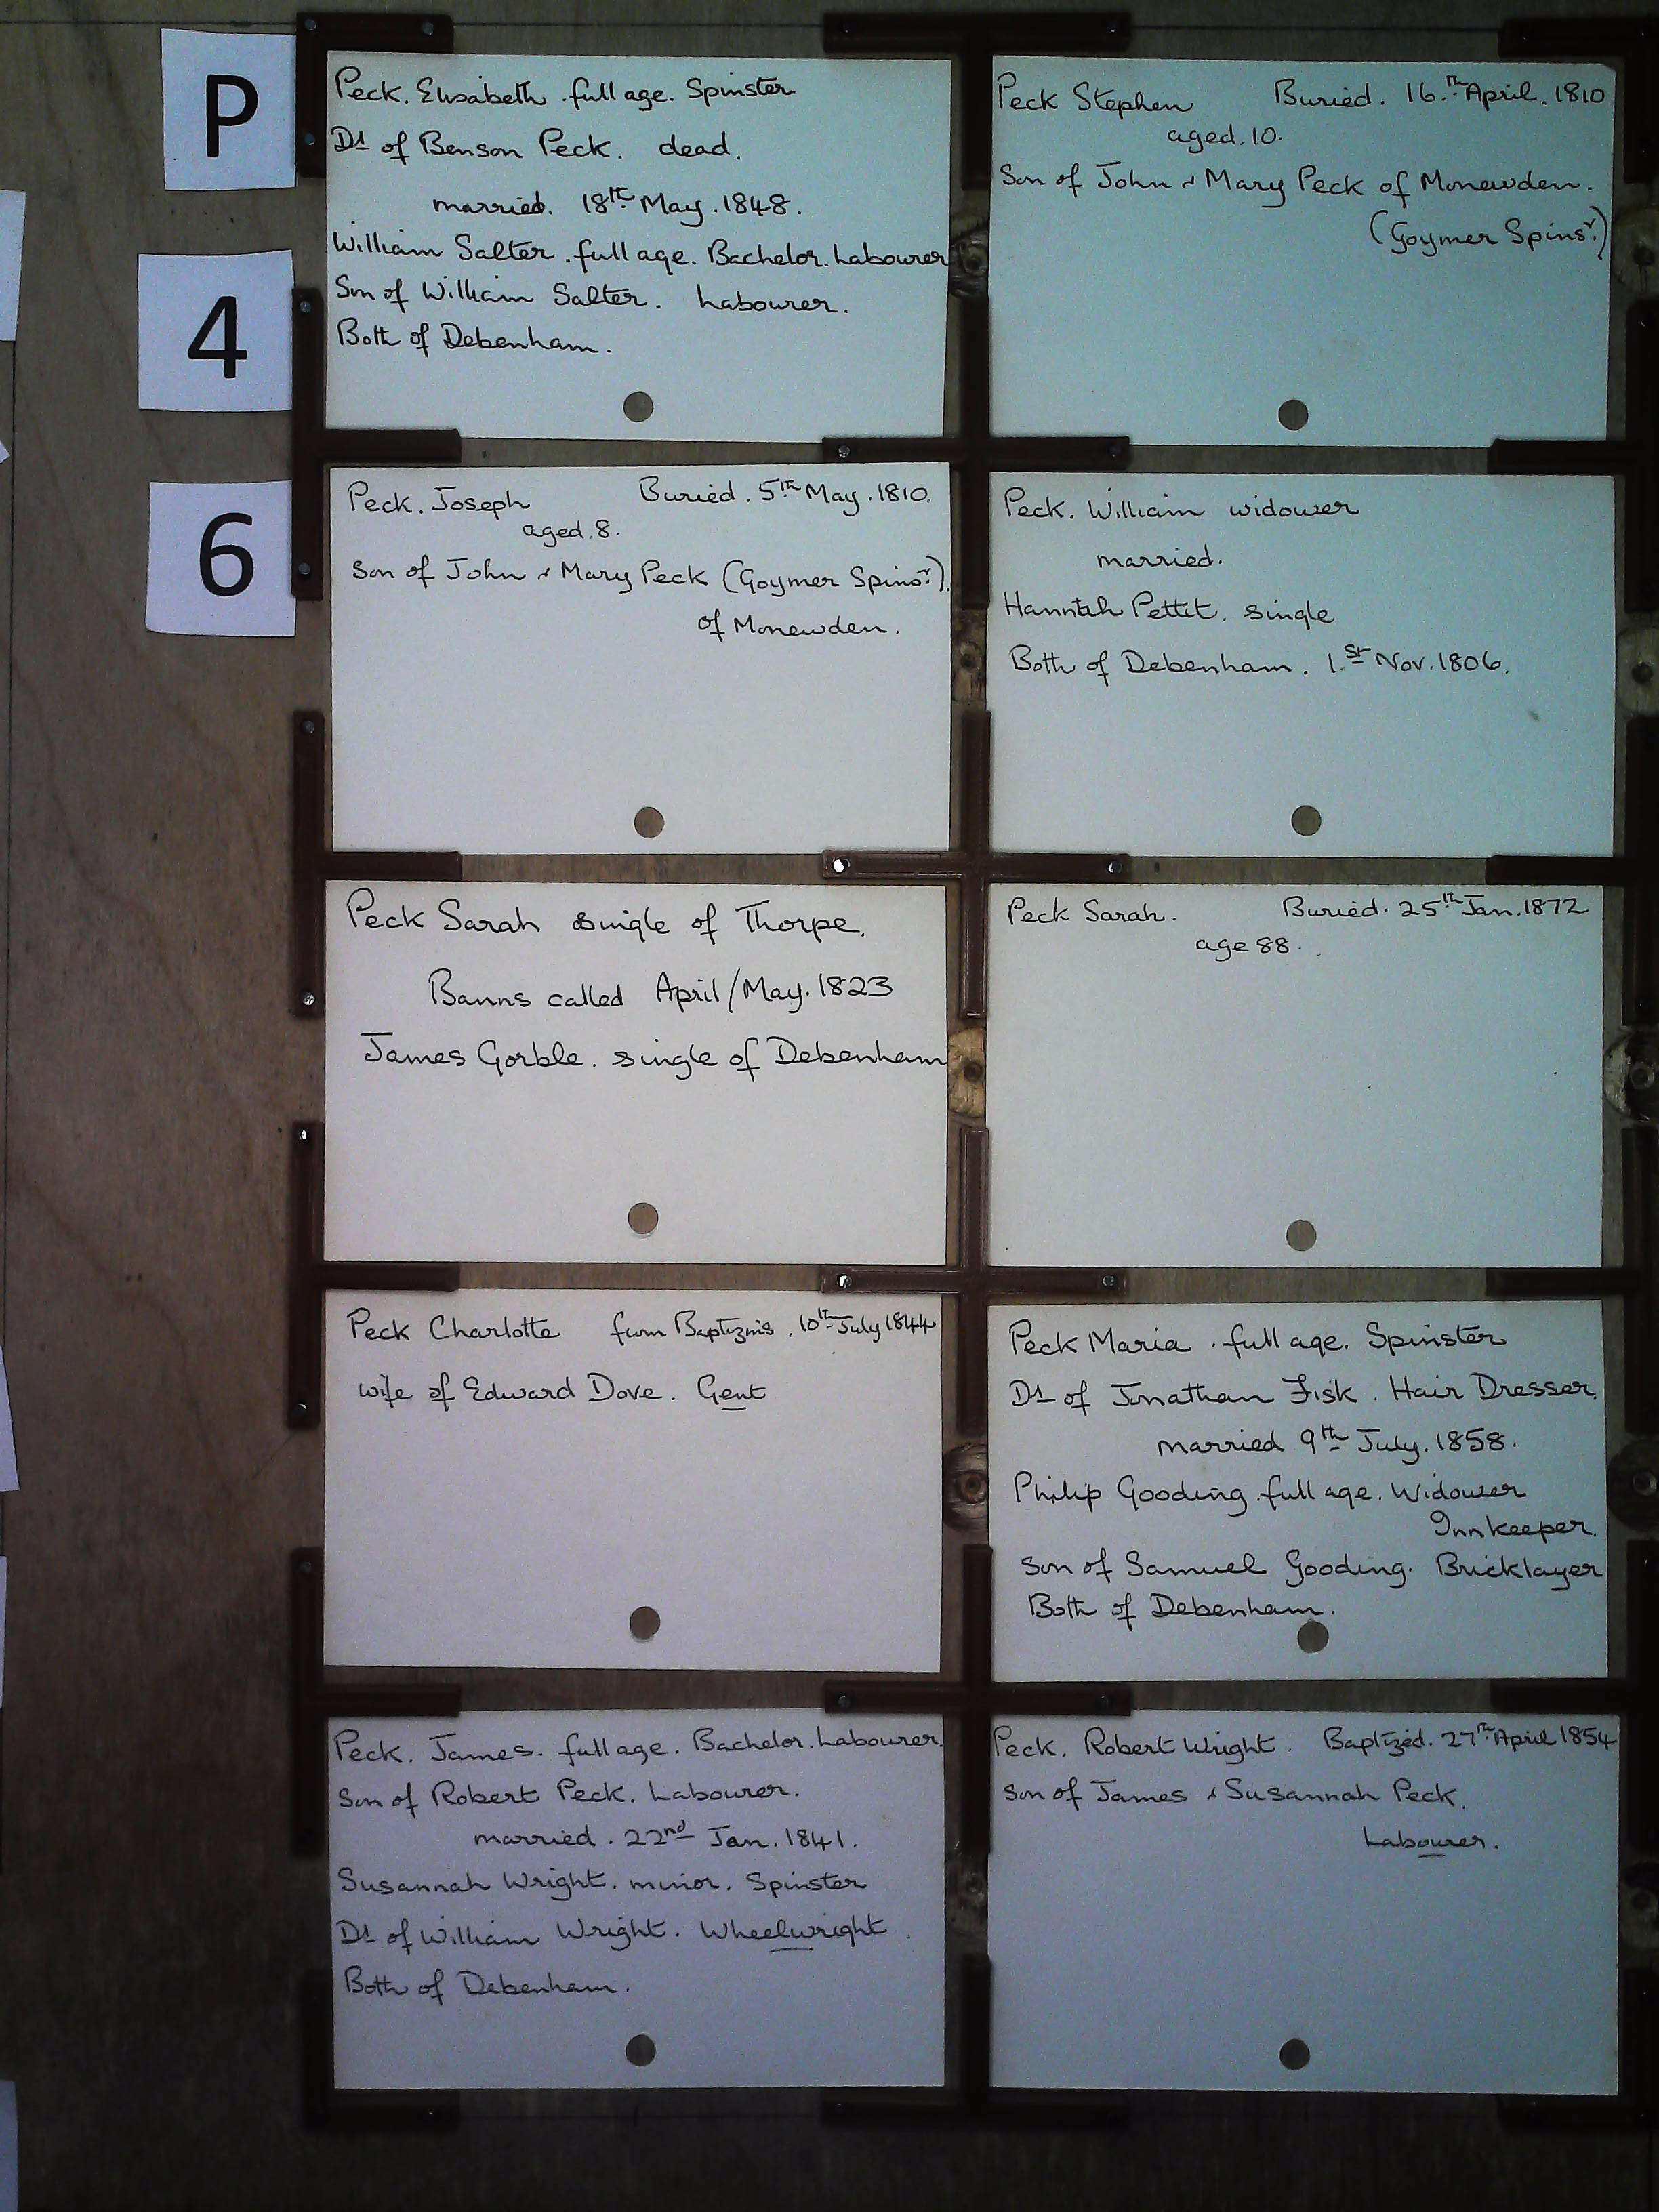 P
4
6
Peck. Elisabeth. full age. Spinster
Dt of Benson Peck. dead.
married. 18th May. 1848.
William Salter. full age. Bachelor. Labourer
Son of William Salter. Labourer.
Both of Debenham.
Peck Stephen Buried. 16th April. 1810
aged. 10.
Son of John & Mary Peck of Monewden.
(Goymer Spinsr.)
Peck. Joseph Buried. 5th May. 1810.
aged. 8.
Son of John & Mary Peck (Goymer Spinsr.).
of Monewden.
Peck. William widower
married.
Hannah Pettit. single
Both of Debenham. 1st Nov. 1806.
Peck Sarah single of Thorpe.
Banns called April/May. 1823
James Gorble. single of Debenham
Peck Sarah. Buried. 25th Jan. 1872
age 88.
Peck Charlotte from Baptizms. 10th July 1844
wife of Edward Dove. Gent
Peck Maria. full age. Spinster
Dt of Jonathan Fisk. Hair Dresser.
married 9th July. 1858.
Philip Gooding. full age. Widower
Innkeeper.
Son of Samuel Gooding. Bricklayer
Both of Debenham.
Peck. James. full age. Bachelor. Labourer.
Son of Robert Peck. Labourer.
married. 22nd Jan. 1841.
Susannah Wright. minor. Spinster
Dt of William Wright. Wheelwright.
Both of Debenham.
Peck. Robert Wright. Baptized. 27th April 1854
Son of James & Susannah Peck.
Labourer.